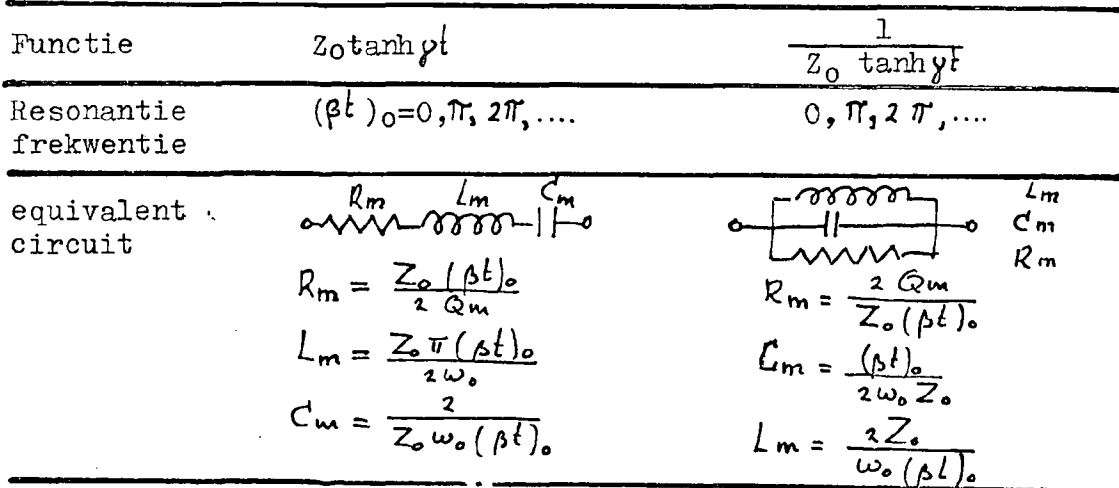 Functie Z₀tanhγt 1 / (Z₀ tanhγt)
Resonantie frekwentie (βt)₀=0,π, 2π,.... 0, π, 2 π,....
equivalent circuit
Rm Lm Cm
Lm
Cm
Rm
Rm = Z₀ (βt)₀ / 2 Qm
Lm = Z₀ π (βt)₀ / 2ω₀
Cm = 2 / Z₀ ω₀ (βt)₀
Rm = 2 Qm / Z₀ (βt)₀
Cm = (βt)₀ / 2ω₀ Z₀
Lm = 2Z₀ / ω₀ (βt)₀